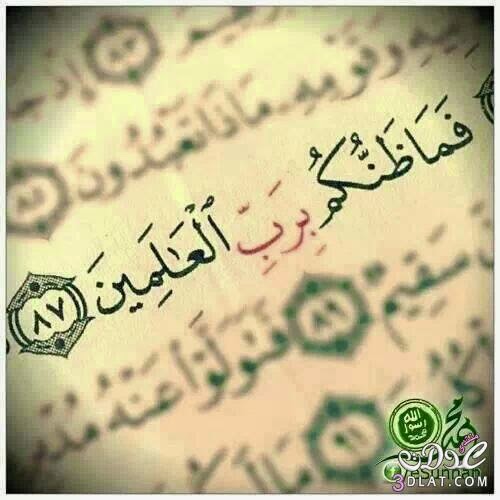 ٨٤ إِذْ
وَقَوْمِهِ مَاذَا تَعْبُدُونَ ٨٥
فَمَا ظَنُّكُم بِرَبِّ ٱلْعَـٰلَمِينَ ٨٧
سَقِيمٌ ٨٩ فَتَوَلَّوْا۟ عَنْهُ
٩١ مَا
الله
رسول
محمد
عدلات
3DLAT.COM